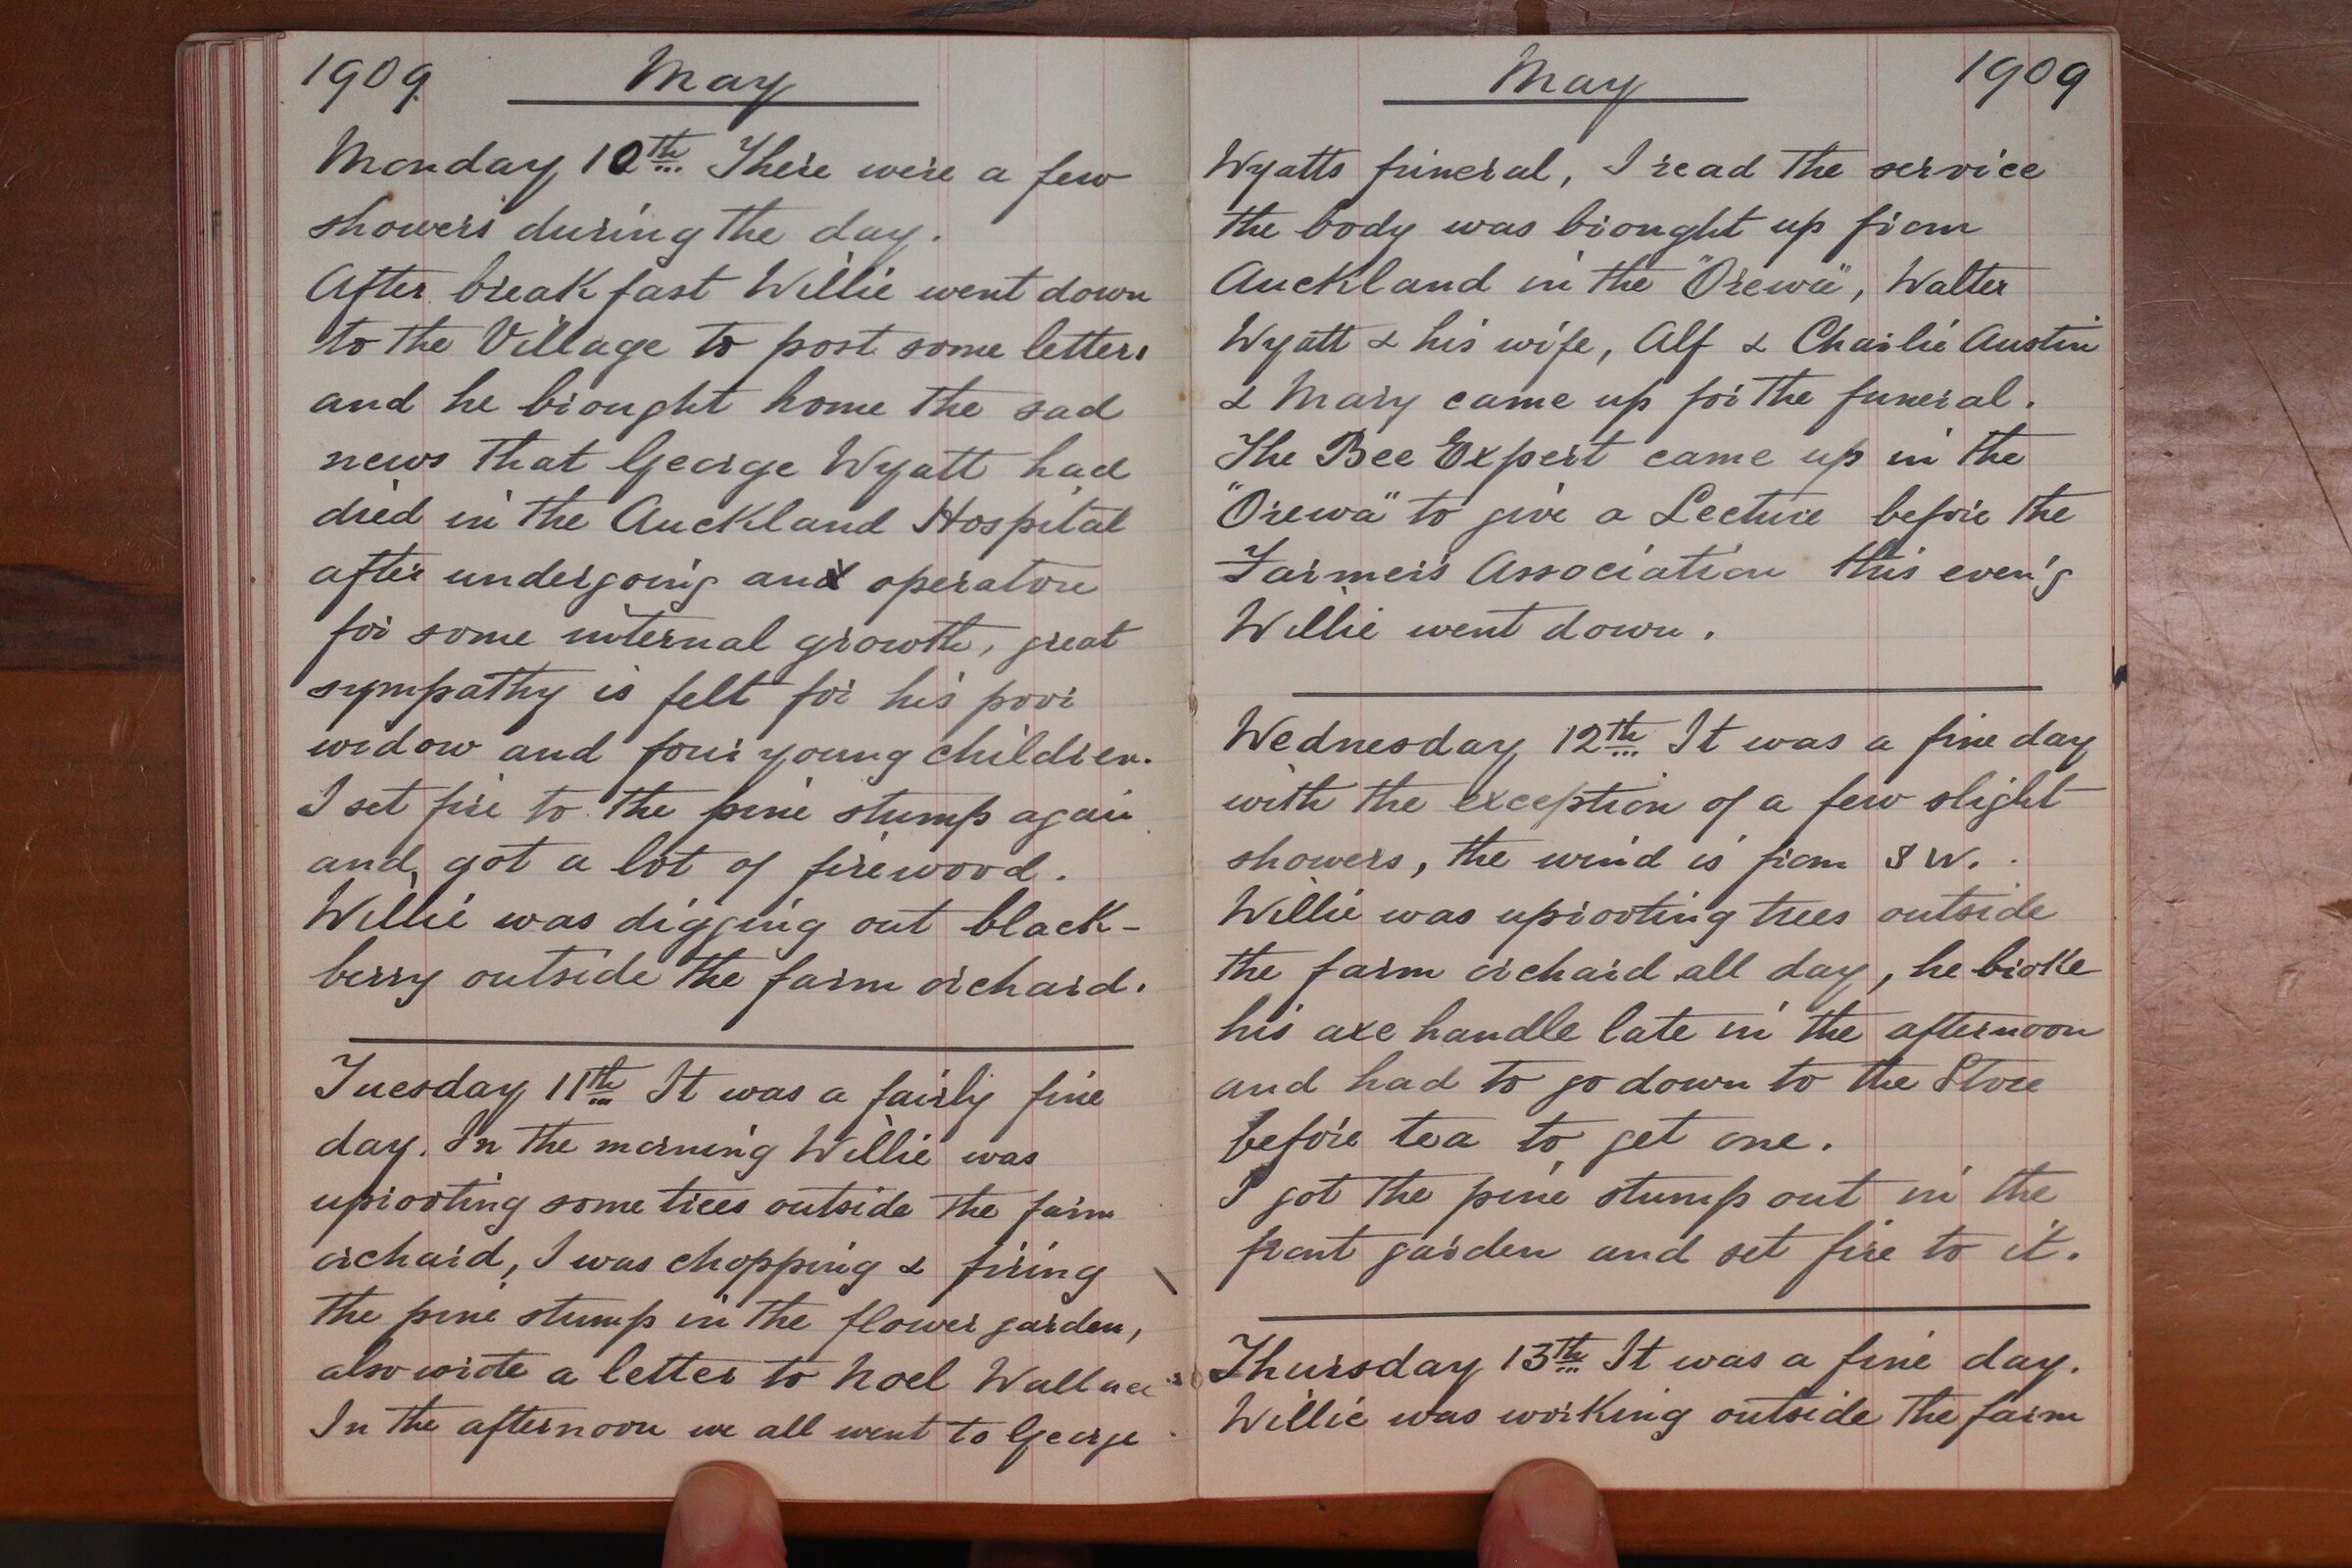 1909. May
Monday 10th There were a few
showers during the day.
After breakfast Willie went down
to the Village to post some letters
and he brought home the sad
news that George Wyatt had
died in the Auckland Hospital
after undergoing an operation
for some internal growth, great
sympathy is felt for his poor
widow and four young children.
I set fire to the pine stump again
and got a lot of firewood.
Willie was digging out black-
berry outside the farm orchard.
Tuesday 11th It was a fairly fine
day. In the morning Willie was
uprooting some trees outside the farm
orchard, I was chopping & firing
the pine stump in the flower garden,
also wrote a letter to Noel Wallace
In the afternoon we all went to George
May 1909
Wyatts funeral, I read the service
the body was brought up from
Auckland in the "Orewa", Walter
Wyatt & his wife, Alf & Charlie Austin
& Mary came up for the funeral.
The Bee Expert came up in the
"Orewa" to give a Lecture before the
Farmers Association this even'g
Willie went down.
Wednesday 12th It was a fine day
with the exception of a few slight
showers, the wind is from S W.
Willie was uprooting trees outside
the farm orchard all day, he broke
his axe handle late in the afternoon
and had to go down to the Store
before tea to get one.
I got the pine stump out in the
front garden and set fire to it.
Thursday 13th It was a fine day.
Willie was working outside the farm